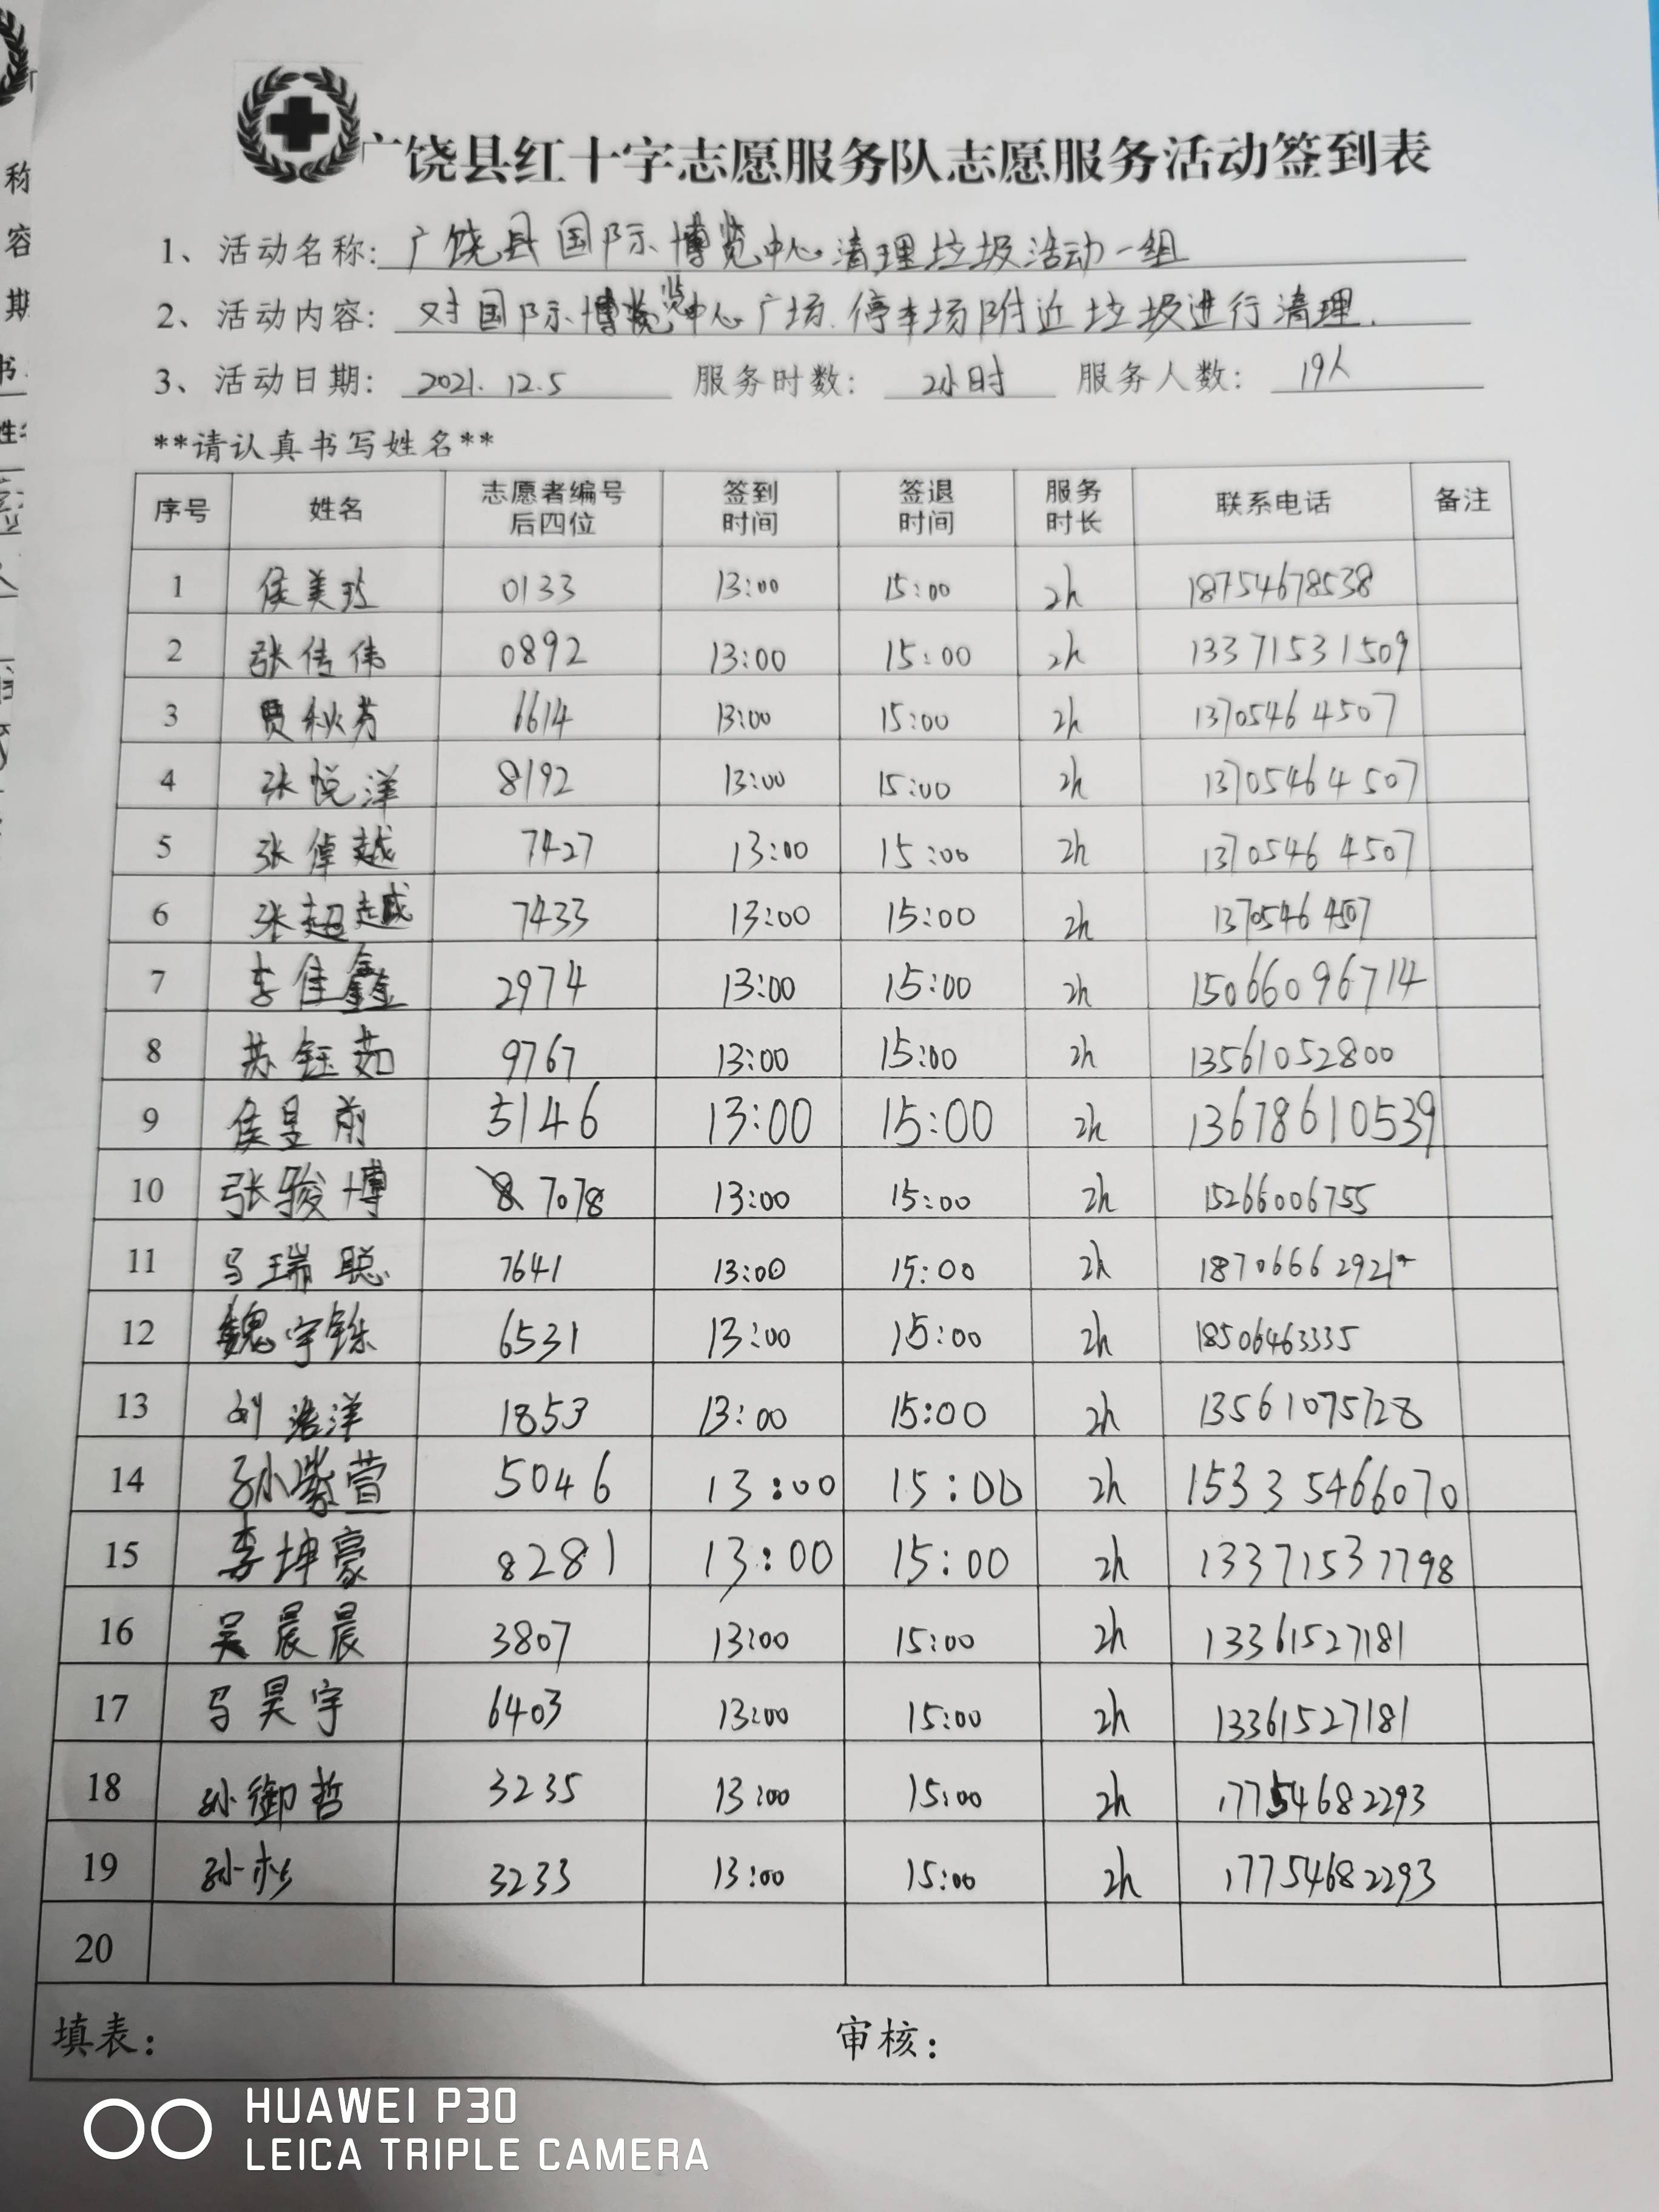 广饶县红十字志愿服务队志愿服务活动签到表
1、活动名称: 广饶县国际博览中心清理垃圾活动一组
2、活动内容: 对国际博览中心广场.停车场附近垃圾进行清理.
3、活动日期: 2021.12.5 服务时数: 2小时 服务人数: 19人
**请认真书写姓名**
序号 姓名 志愿者编号后四位 签到时间 签退时间 服务时长 联系电话 备注
1 侯美 0133 13:00 15:00 2h 18754678538
2 张传伟 0892 13:00 15:00 2h 13371531509
3 贾秋芳 6614 13:00 15:00 2h 13705464507
4 张悦洋 8192 13:00 15:00 2h 13705464507
5 张倬越 7427 13:00 15:00 2h 13705464507
6 张超越 7433 13:00 15:00 2h 13705464507
7 李佳鑫 2974 13:00 15:00 2h 15066096714
8 苏钰茹 9767 13:00 15:00 2h 13561052800
9 侯昱前 5146 13:00 15:00 2h 13678610539
10 张骏博 7078 13:00 15:00 2h 15266006755
11 马瑞聪 7641 13:00 15:00 2h 18706662921
12 魏宇铄 6531 13:00 15:00 2h 18506463335
13 刘浩洋 1853 13:00 15:00 2h 13561075728
14 孙紫萱 5046 13:00 15:00 2h 15335466070
15 李坤豪 8281 13:00 15:00 2h 13371537798
16 吴晨晨 3807 13:00 15:00 2h 13361527181
17 马昊宇 6403 13:00 15:00 2h 13361527181
18 孙御哲 3235 13:00 15:00 2h 17754682293
19 孙彬 3233 13:00 15:00 2h 17754682293
20
填表: 审核:
HUAWEI P30
LEICA TRIPLE CAMERA